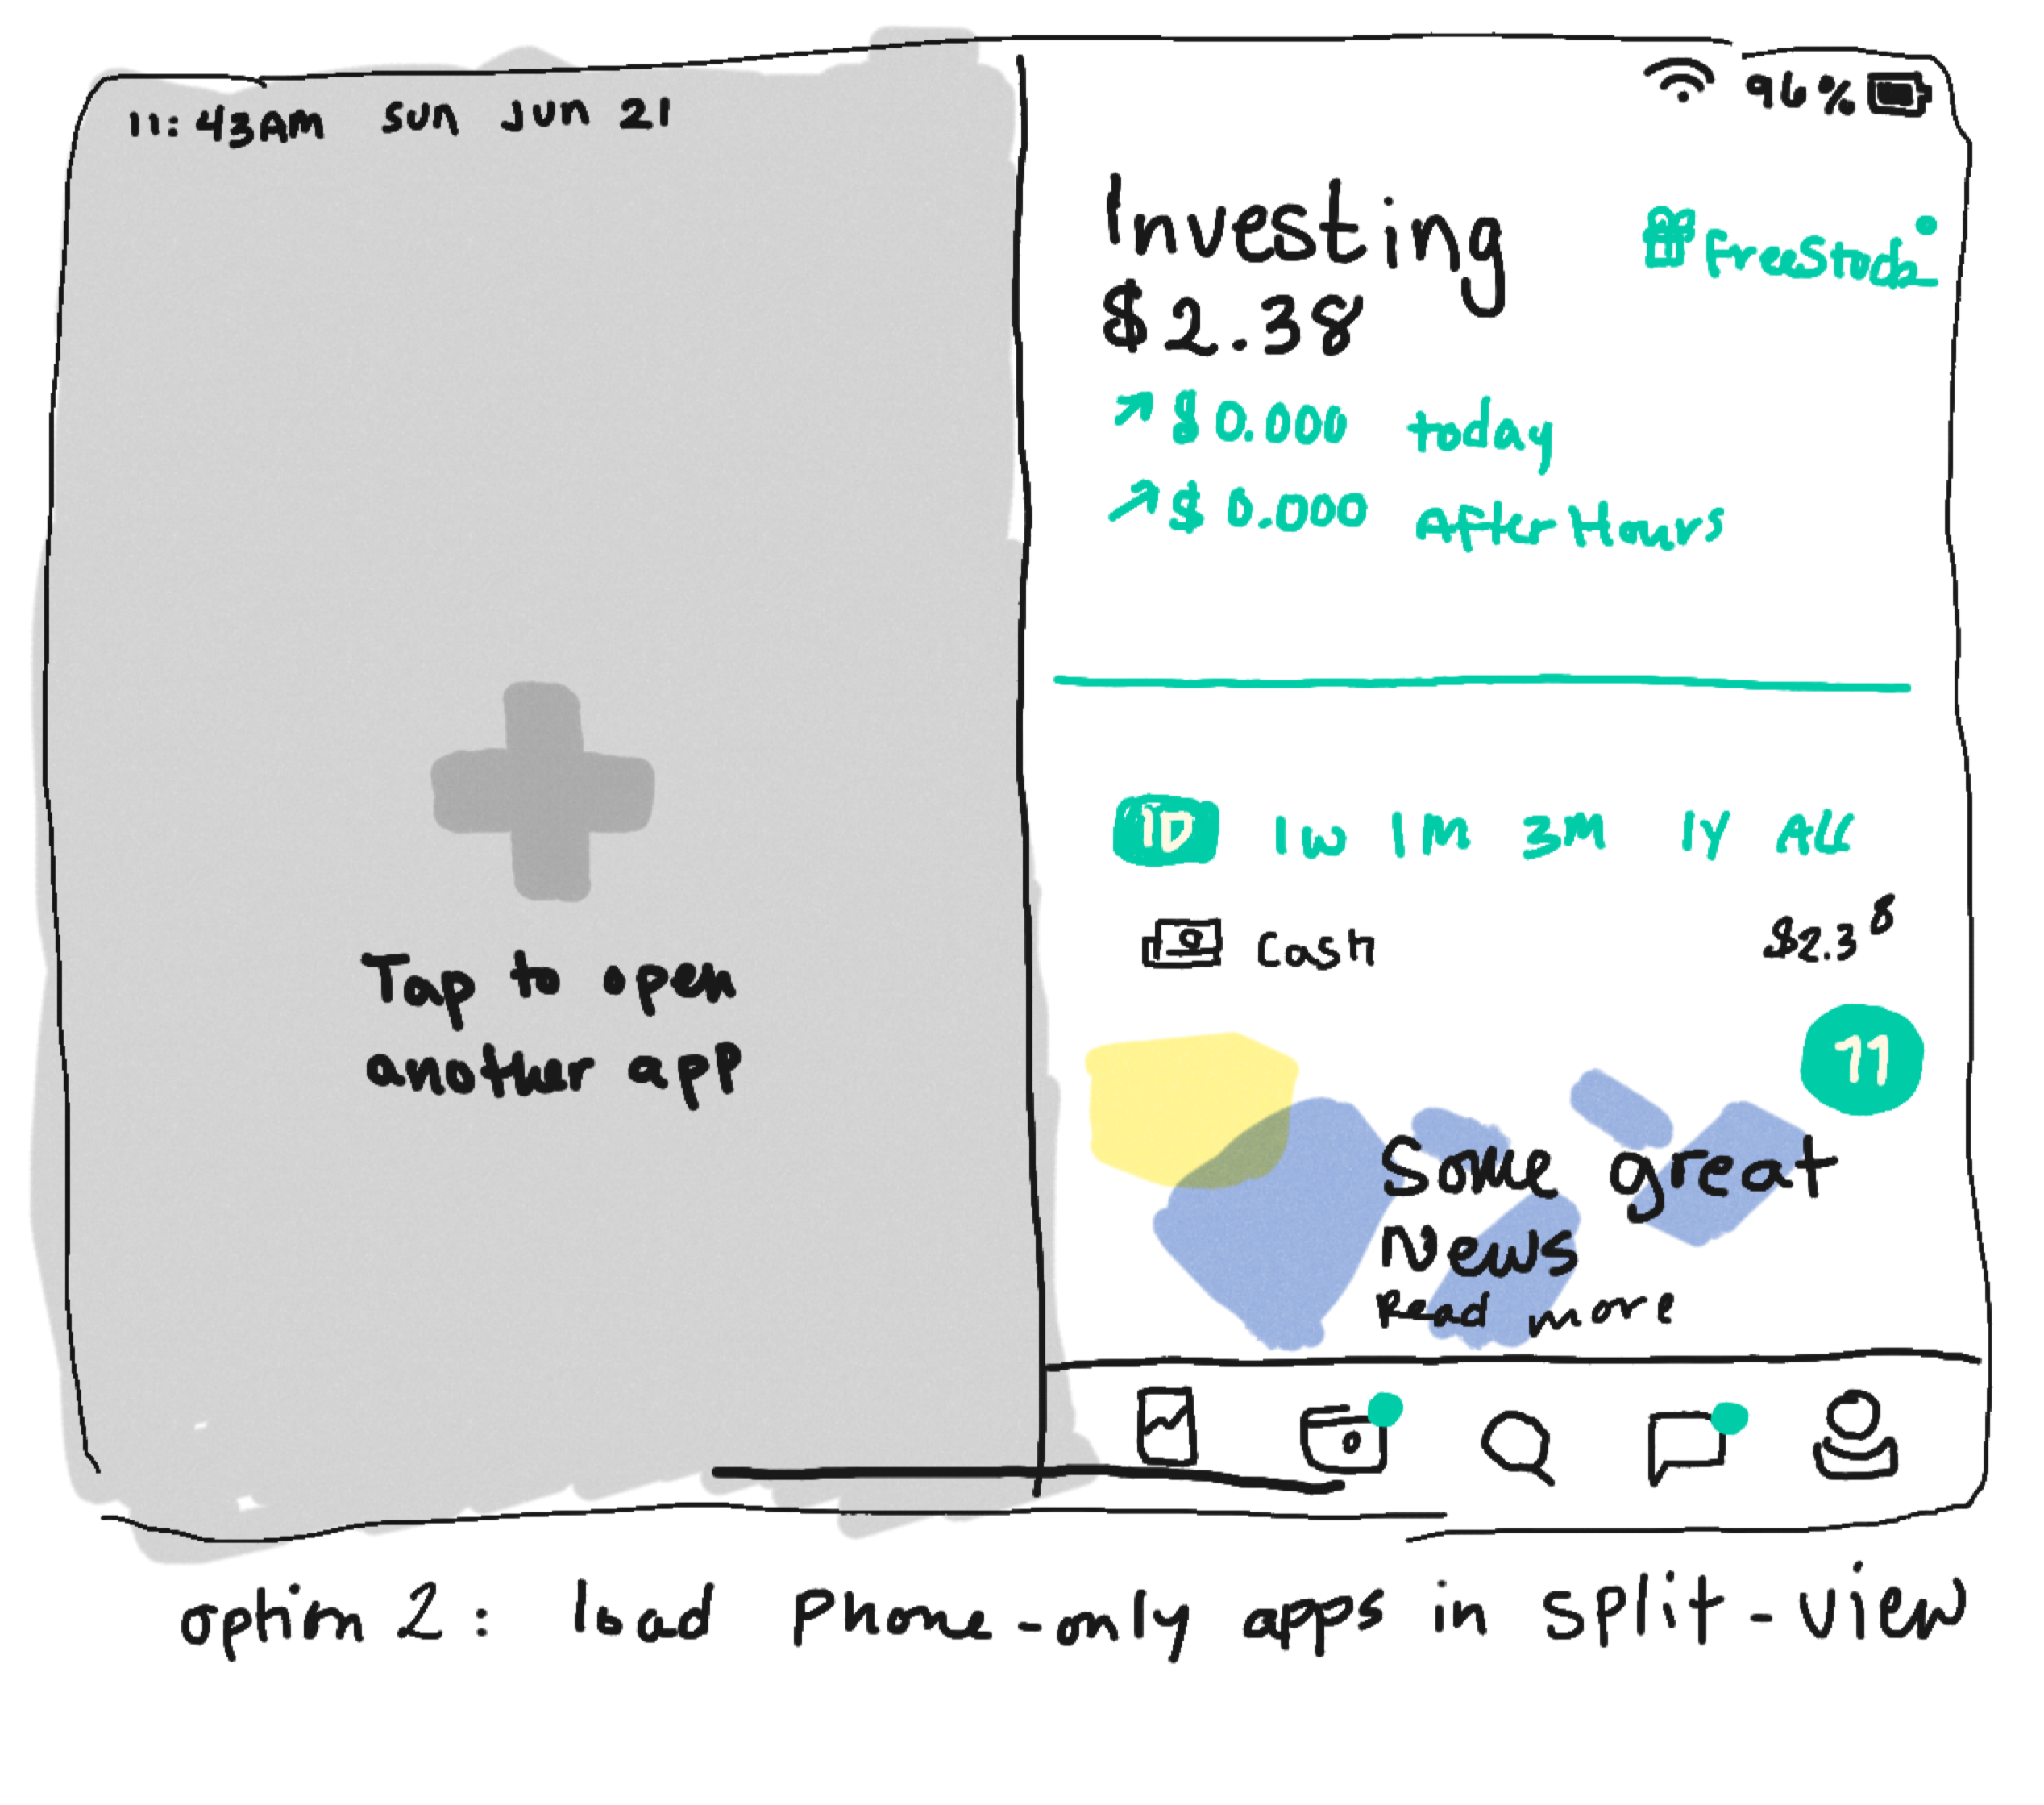 11:43AM SUN JUN 21
96%
Tap to open
another app
Investing
$2.38
FreeStock
$0.000 today
$0.000 After Hours
1D 1W 1M 3M 1Y All
Cash $2.38
11
Some great
News
Read more
option 2: load phone-only apps in split-view